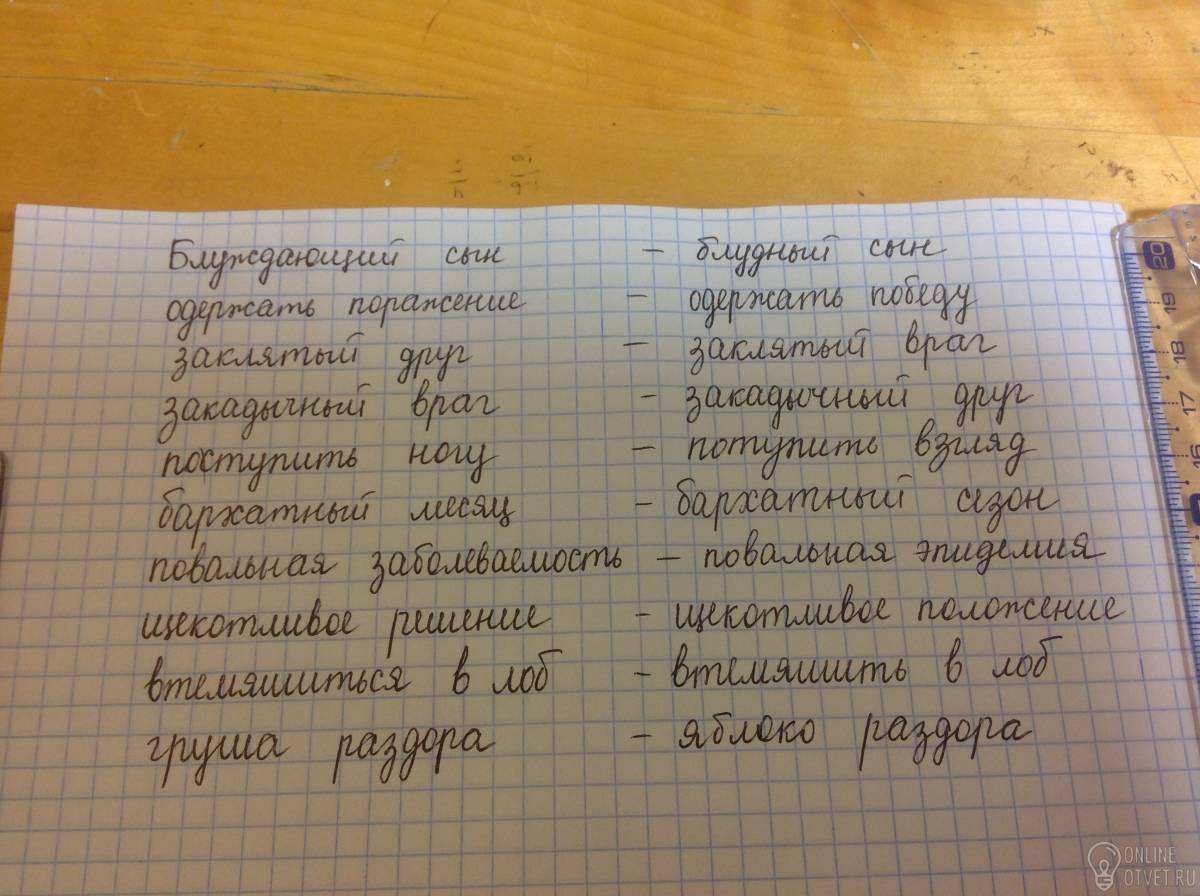 Блуждающий сын - блудный сын
одержать поражение - одержать победу
заклятый друг - заклятый враг
закадычный враг - закадычный друг
поступить ногу - потупить взгляд
бархатный месяц - бархатный сезон
повальная заболеваемость - повальная эпидемия
щекотливое решение - щекотливое положение
втемяшиться в лоб - втемяшить в лоб
груша раздора - яблоко раздора
20
19
18
17
ONLINE
OTVET.RU